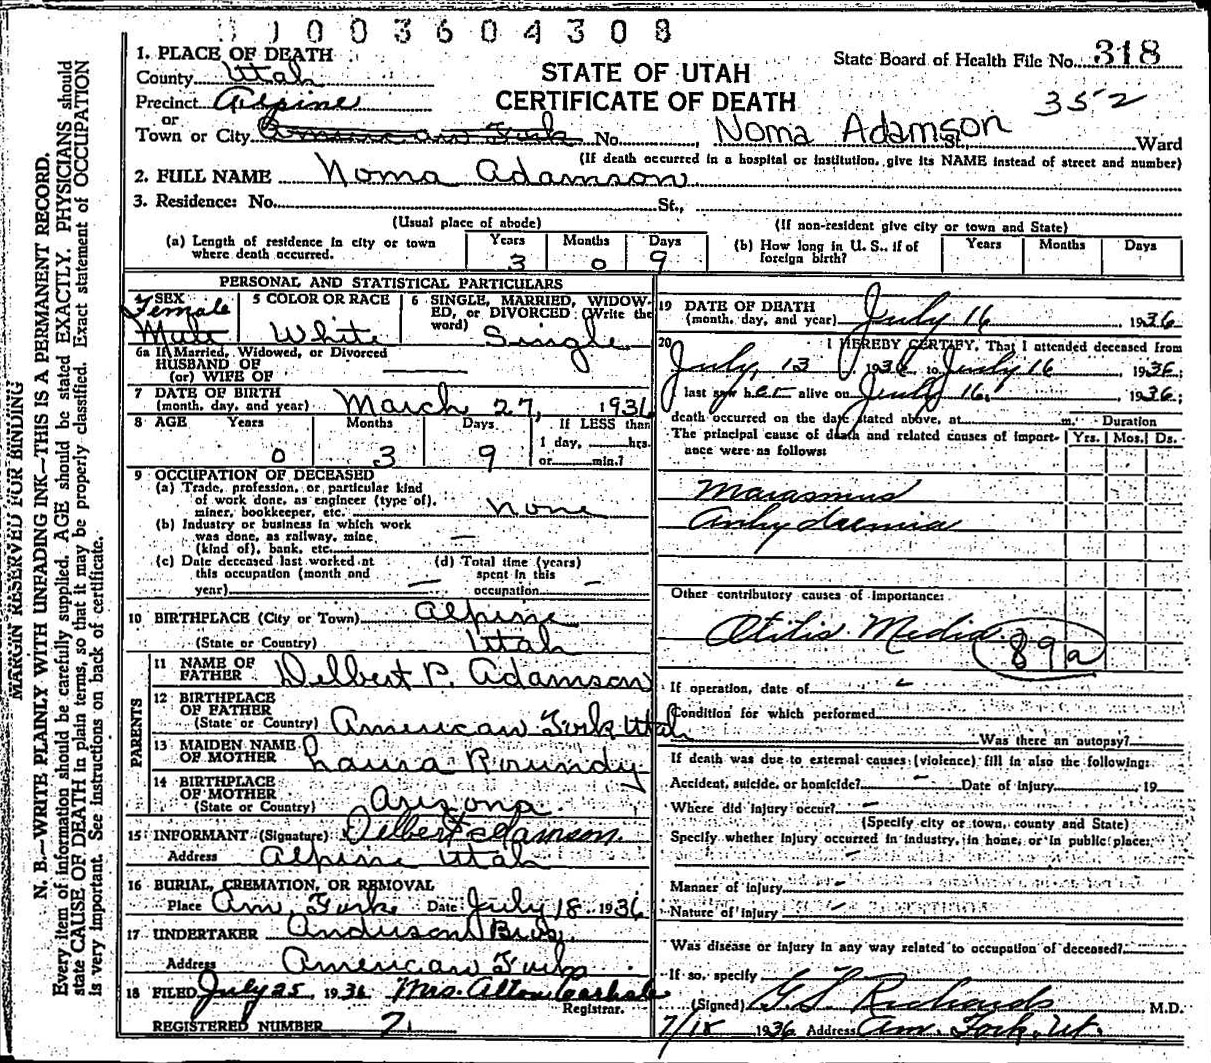 003604308
1. PLACE OF DEATH
State Board of Health File No. 318
County Utah
STATE OF UTAH
Precinct Alpine
CERTIFICATE OF DEATH
352
or
Town or City American Fork No. Noma Adamson St., Ward
(If death occurred in a hospital or institution, give its NAME instead of street and number)
2. FULL NAME Noma Adamson
3. Residence: No. St.,
(Usual place of abode) (If non-resident give city or town and State)
(a) Length of residence in city or town where death occurred. Years 3 Months 0 Days 9
(b) How long in U. S., if of foreign birth? Years Months Days
PERSONAL AND STATISTICAL PARTICULARS
4 SEX Female Male
5 COLOR OR RACE White
6 SINGLE, MARRIED, WIDOWED, or DIVORCED (Write the word) Single
6a If Married, Widowed, or Divorced
HUSBAND OF
(or) WIFE OF
7 DATE OF BIRTH
(month, day, and year) March 27, 1936
8 AGE Years 0 Months 3 Days 9 If LESS than
1 day, hrs.
or min.?
9 OCCUPATION OF DECEASED
(a) Trade, profession, or particular kind
of work done, as engineer (type of),
miner, bookkeeper, etc. none
(b) Industry or business in which work
was done, as railway, mine,
(kind of), bank, etc. —
(c) Date deceased last worked at
this occupation (month and
year) —
(d) Total time (years)
spent in this
occupation —
10 BIRTHPLACE (City or Town) Alpine
(State or Country) Utah
PARENTS
11 NAME OF
FATHER Delbert P. Adamson
12 BIRTHPLACE
OF FATHER
(State or Country) American Fork Utah
13 MAIDEN NAME
OF MOTHER Laura Roundy
14 BIRTHPLACE
OF MOTHER
(State or Country) Arizona
15 INFORMANT (Signature) Delbert Adamson.
Address Alpine Utah
16 BURIAL, CREMATION, OR REMOVAL
Place Am. Fork Date July 18 1936
17 UNDERTAKER Anderson Bros.
Address American Fork
18 FILED July 25, 1936 Mrs. Alton Carlisle
Registrar.
REGISTERED NUMBER 7
19 DATE OF DEATH
(month, day, and year) July 16, 1936
20 I HEREBY CERTIFY, That I attended deceased from
July 13, 1936 to July 16 1936;
last saw her alive on July 16, 1936;
death occurred on the date stated above, at m. Duration
The principal cause of death and related causes of importance were as follows: Yrs. Mos. Ds.
Marasmus
Anhydraemia
Other contributory causes of importance:
Otitis Media
89a
If operation, date of
Condition for which performed
Was there an autopsy?
If death was due to external causes (violence) fill in also the following:
Accident, suicide, or homicide? Date of injury 19
Where did injury occur?
(Specify city or town, county and State)
Specify whether injury occurred in industry, in home, or in public place:
Manner of injury
Nature of injury
Was disease or injury in any way related to occupation of deceased?
If so, specify
(Signed) G. S. Richards M.D.
7/18 1936 Address Am. Fork, Ut.
MARGIN RESERVED FOR BINDING
N. B.—WRITE PLAINLY WITH UNFADING INK—THIS IS A PERMANENT RECORD.
Every item of information should be carefully supplied. AGE should be stated EXACTLY. PHYSICIANS should
state CAUSE OF DEATH in plain terms, so that it may be properly classified. Exact statement of OCCUPATION
is very important. See instructions on back of certificate.